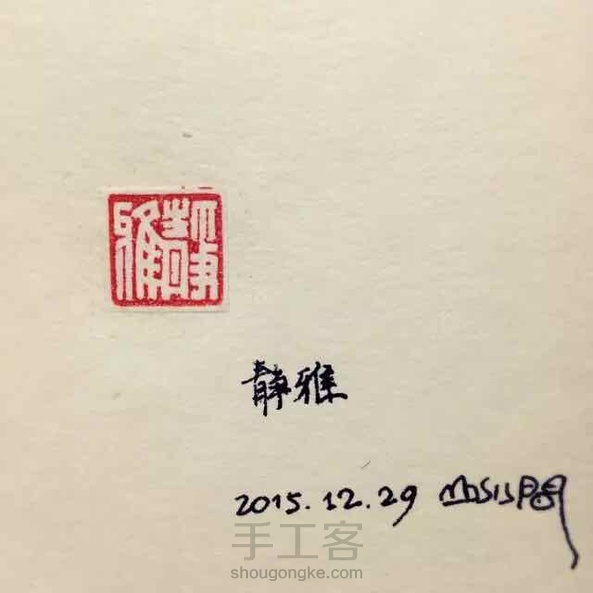 靜雅
靜雅
2015.12.29
手工客
shougongke.com